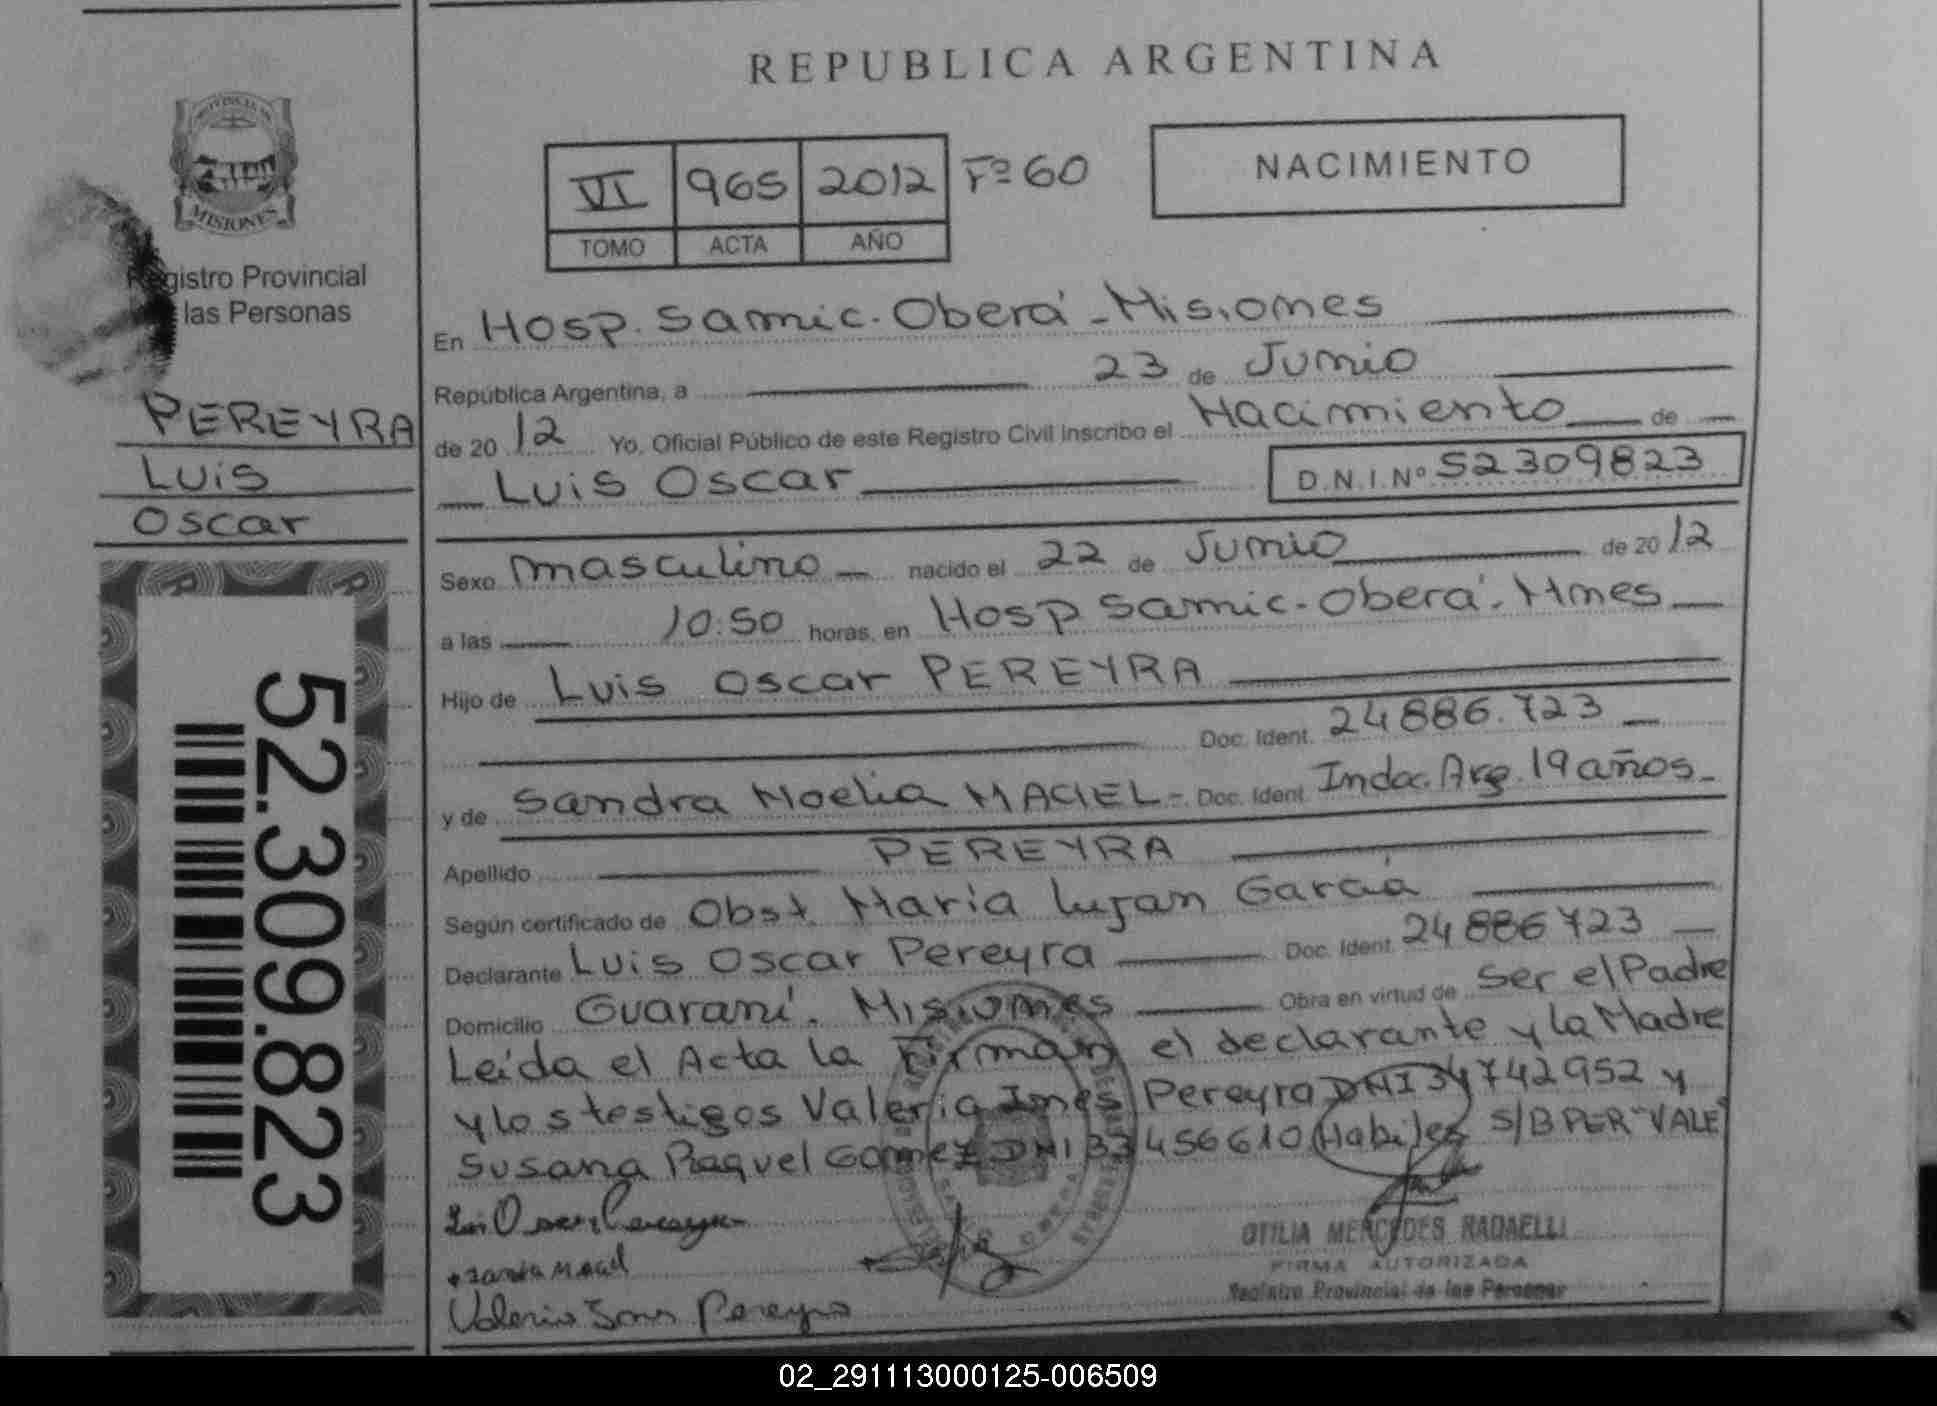 REPUBLICA ARGENTINA
PROVINCIA DE
MISIONES
Registro Provincial
las Personas
PEREYRA
Luis
Oscar
52.309.823
VI 965 2012 Fº 60
TOMO ACTA AÑO
NACIMIENTO
En Hosp. Samic. Oberá - Misiones
República Argentina, a 23 de Junio
de 2012 Yo, Oficial Público de este Registro Civil inscribo el Nacimiento de
Luis Oscar D.N.I. Nº 52309823
Sexo masculino nacido el 22 de Junio de 2012
a las 10:50 horas, en Hosp Samic. Oberá. Mnes
Hijo de Luis Oscar PEREYRA
Doc. Ident. 24886.723
y de Sandra Noelia MACIEL - Doc. Ident. Indoc. Arg. 19 años.
Apellido PEREYRA
Según certificado de Obst. Maria Lujan Garcia
Declarante Luis Oscar Pereyra Doc. Ident. 24886723
Domicilio Guaraní. Misiones Obra en virtud de ser el Padre
Leída el Acta la Firman el declarante y la Madre
y los testigos Valeria Ines Pereyra DNI 34742952 y
Susana Raquel Gomez DNI 33456610 Habiles S/B PER "VALE"
Luis Oscar Pereyra
Sandra Maciel
Valeria Ines Pereyra
OTILIA MERCEDES RADAELLI
FIRMA AUTORIZADA
Registro Provincial de las Personas
02_291113000125-006509